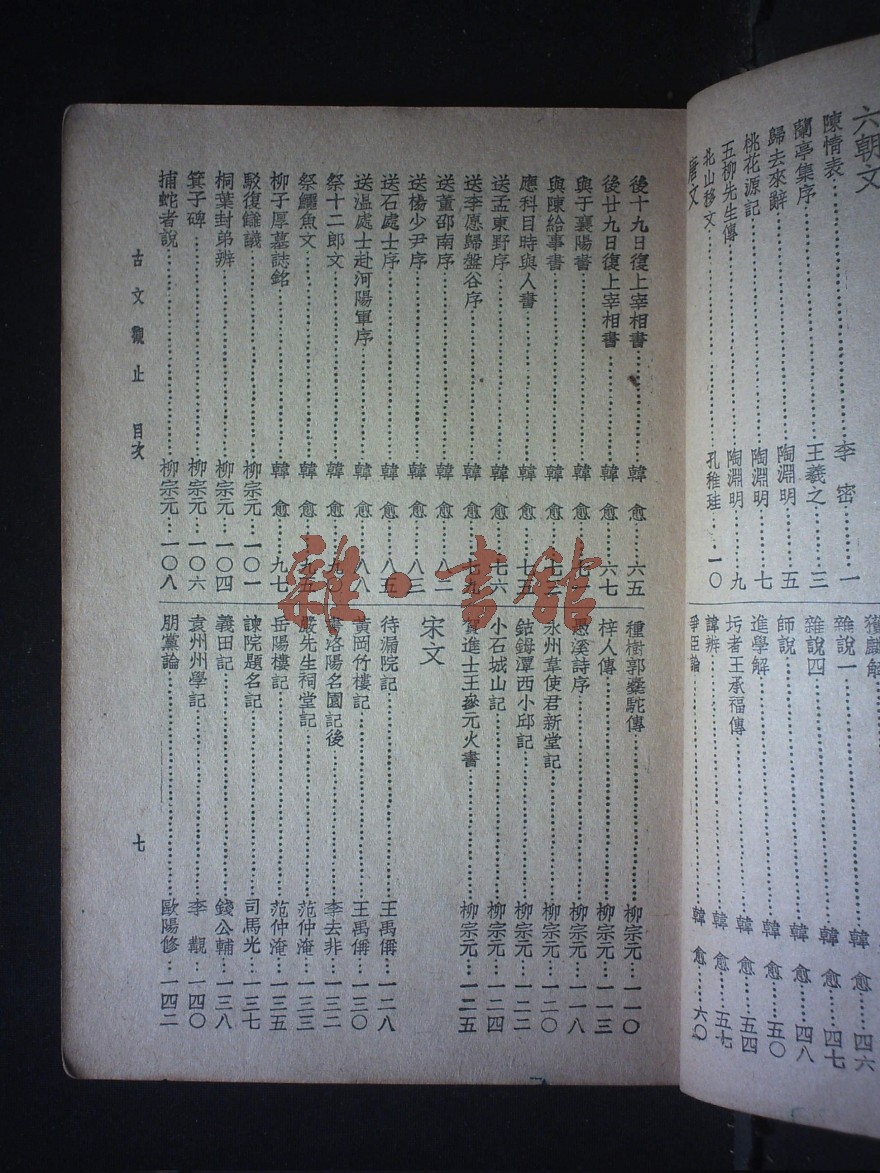 六朝文
陳情表 李密 一
蘭亭集序 王羲之 三
歸去來辭 陶淵明 五
桃花源記 陶淵明 七
五柳先生傳 陶淵明 九
北山移文 孔稚珪 一〇
唐文
獲麟解 韓愈 四六
雜說一 韓愈 四七
雜說四 韓愈 四八
師說 韓愈 五〇
進學解 韓愈 五四
圬者王承福傳 韓愈 五七
諱辨
爭臣論 韓愈 六〇
後十九日復上宰相書 韓愈 六五
後廿九日復上宰相書 韓愈 六七
與于襄陽書 韓愈 七一
與陳給事書 韓愈
應科目時與人書 韓愈 七五
送孟東野序 韓愈 七六
送李愿歸盤谷序 韓愈 七九
送董邵南序 韓愈 八二
送楊少尹序 韓愈 八三
送石處士序 韓愈 八五
送溫處士赴河陽軍序 韓愈 八八
祭十二郎文 韓愈 九〇
祭鱷魚文 韓愈 九五
柳子厚墓誌銘 韓愈 九七
駁復讎議 柳宗元 一〇一
桐葉封弟辨 柳宗元 一〇四
箕子碑 柳宗元 一〇六
捕蛇者說 柳宗元 一〇八
種樹郭橐駝傳 柳宗元 一一〇
梓人傳 柳宗元 一一三
愚溪詩序 柳宗元 一一八
永州韋使君新堂記 柳宗元 一二〇
鈷鉧潭西小邱記 柳宗元 一二二
小石城山記 柳宗元 一二四
賀進士王參元火書 柳宗元 一二五
宋文
待漏院記 王禹偁 一二八
黃岡竹樓記 王禹偁 一三〇
書洛陽名園記後 李去非 一三二
嚴先生祠堂記 范仲淹 一三三
岳陽樓記 范仲淹 一三五
諫院題名記 司馬光 一三七
義田記 錢公輔 一三八
袁州州學記 李覯 一四〇
朋黨論 歐陽修 一四二
古文觀止 目次
七
雜·書館